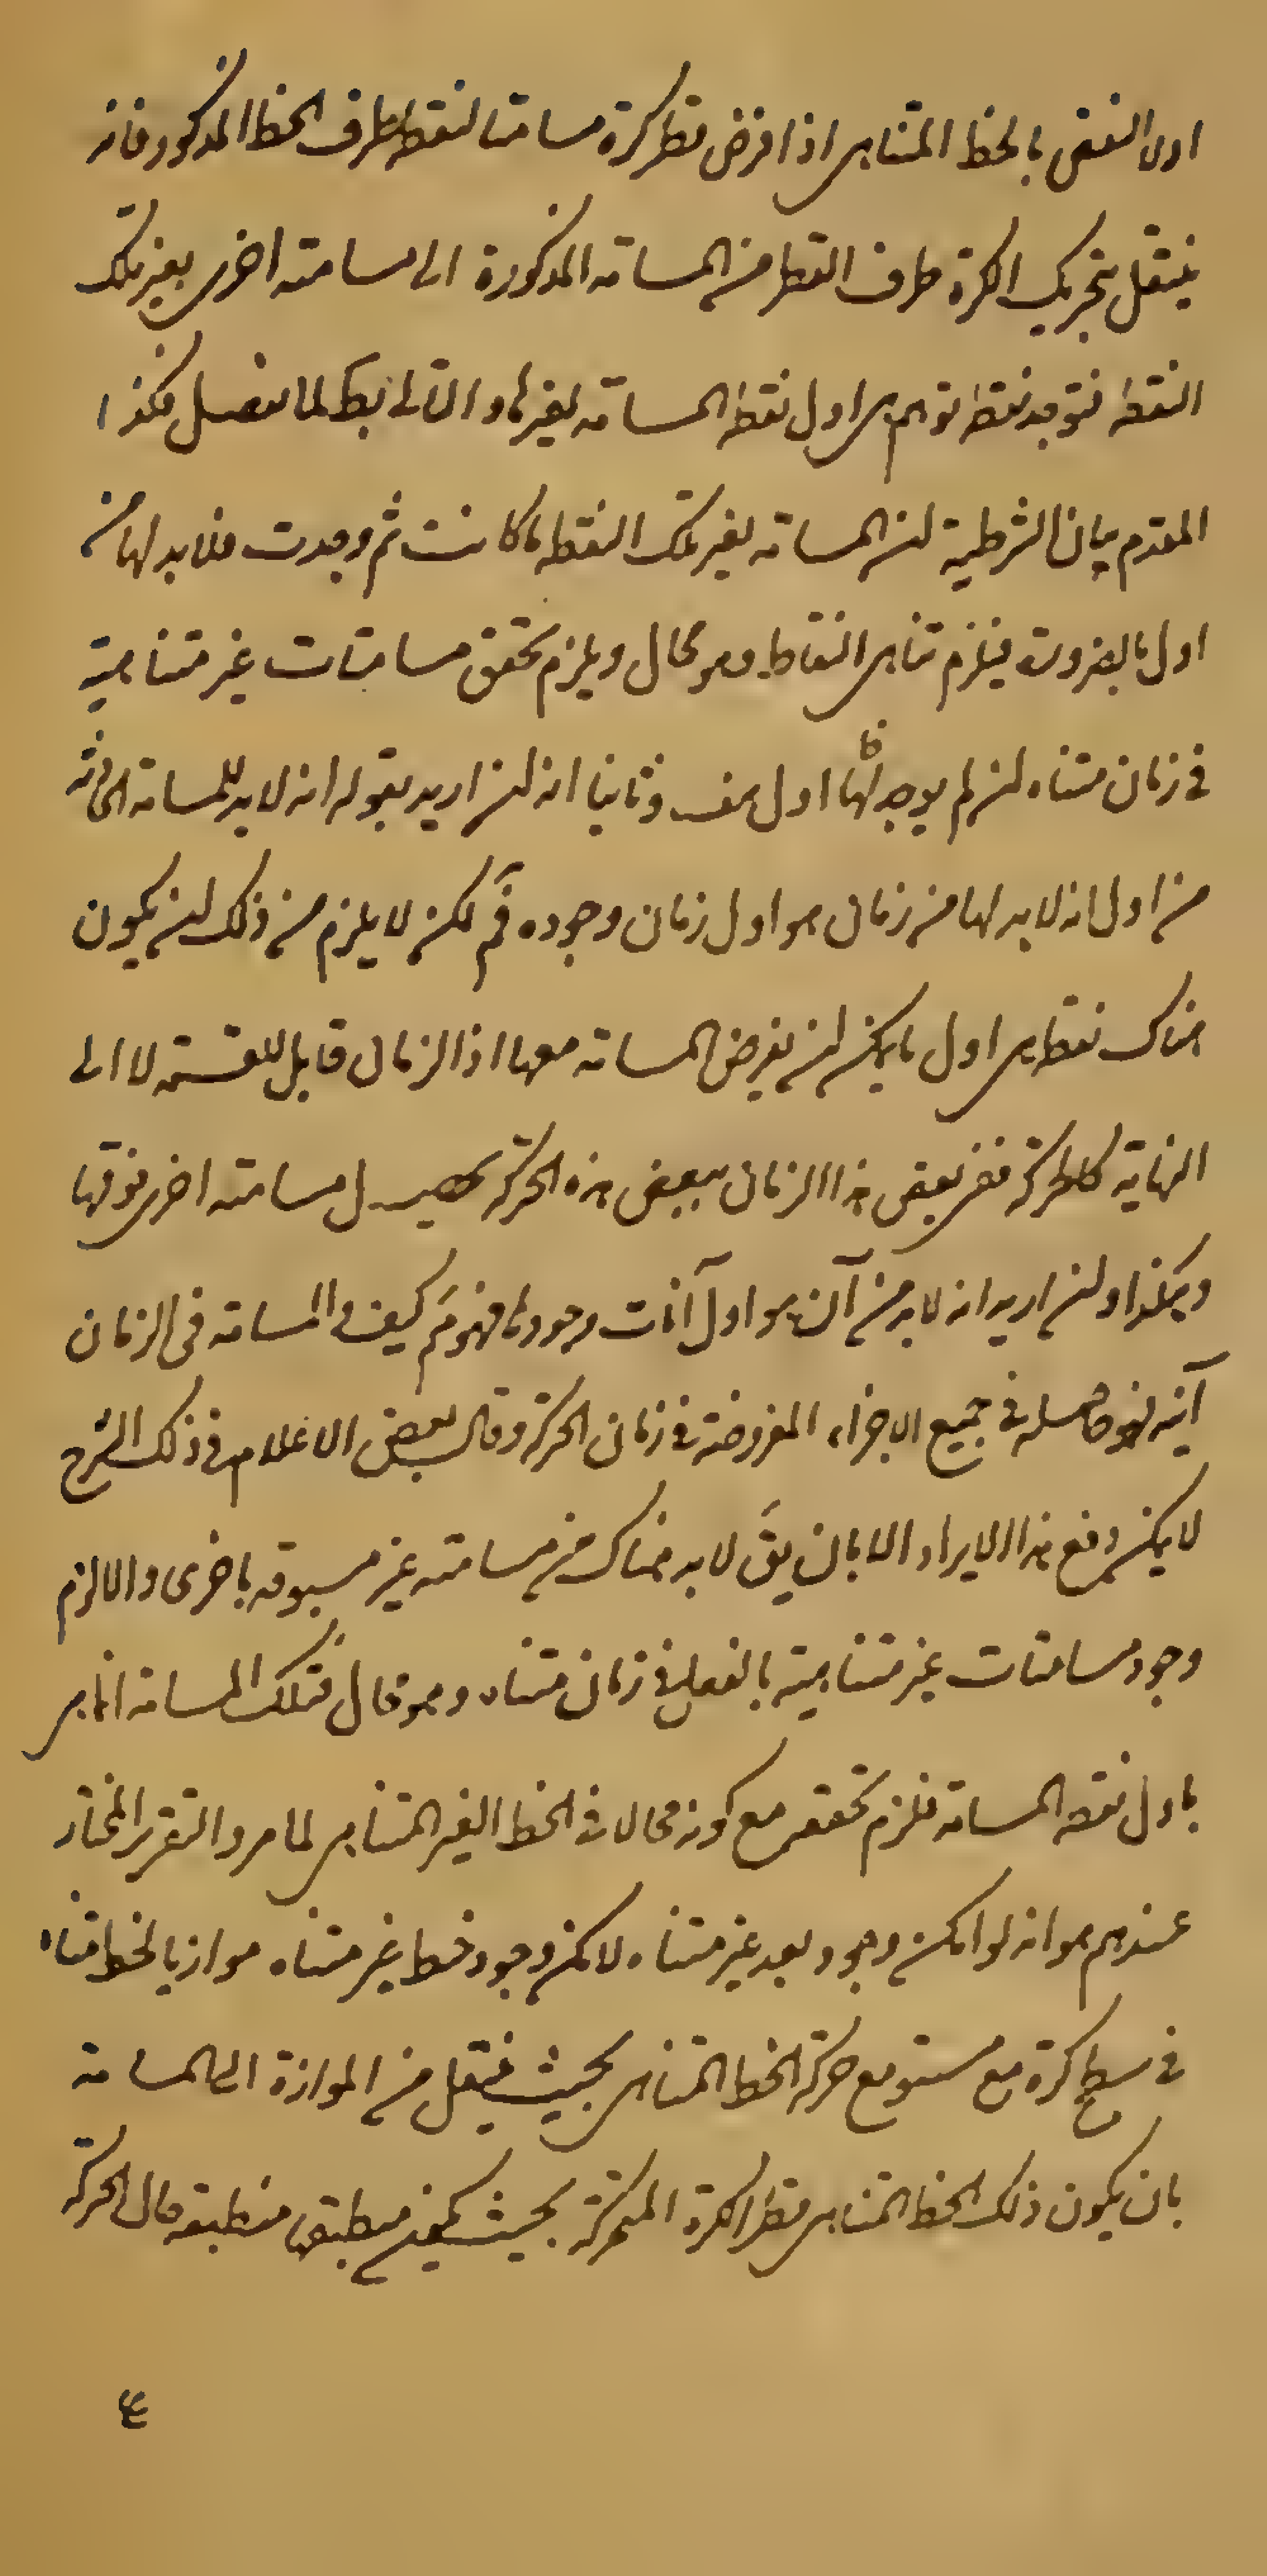 اولا النقض بالخط المتناهى اذا فرض قطر كرة مسامتا لنقطه طرف الخط المذكور فانه
ينتقل بتحريك الكرة طرف القطر من المسامته المذكورة الى مسامته اخرى بغير تلك
النقطه فتوجد نقطه توهم هى اول نقطه المسامته بغيرها والتالى بط لما سفصل فكذا
المقدم بيان الشرطية لن المسامته بغير تلك النقطه ما كانت ثم وجدت فلا بد لها من
اول بالضرورة فيلزم تناهى النقاط وهو محال ويلزم تحقق مسامتات غير متناهية
فى زمان متناه لن لم يوجد لها اول هف وثانيا انه لن اريد بقوله انه لا بد للمسامته الحادثه
من اول انه لا بد لها من زمان هو اول زمان وجوده فم لكن لا يلزم من ذلك لن يكون
هناك نقطه هى اول ما يمكن لن يفرض المسامته معها اذ الزمان قابل للقسمة لا الى
النهاية كالحركة ففى بعض هذا الزمان ببعض هذه الحركة تحصيل مسامته اخرى فوقها
وهكذا ولن اريد انه لا بد من آن هو اول آنات وجودها فهو مم كيف والمسامته فى الزمان
آنيه لنها حاصله فى جميع الاجزاء المفروضة فى زمان الحركة وقال بعض الاعلام فى ذلك الشرح
لا يمكن دفع هذا الايراد الا بان يق لا بد هناك من مسامته غير مسبوقه باخرى والا لزم
وجود مسامتات غير متناهية بالفعل فى زمان متناه وهو محال فتلك المسامته انما هى
باول نقطه المسامته فلزم تحققه مع كونه محالا فى الخط الغير المتناهى لما مر والتقرير المختار
عندهم هو انه لو امكن وجود بعد غير متناه لامكن وجود خط غير متناه موازيا لخط متناه
فى سطح كرة مع مستو مع حركة الخط المتناهى بحيث ينتقل من الموازة الى المسامته
بان يكون ذلك الخط المتناهى قطر الكرة المتحركة بحيث منطبقه حال الحركة